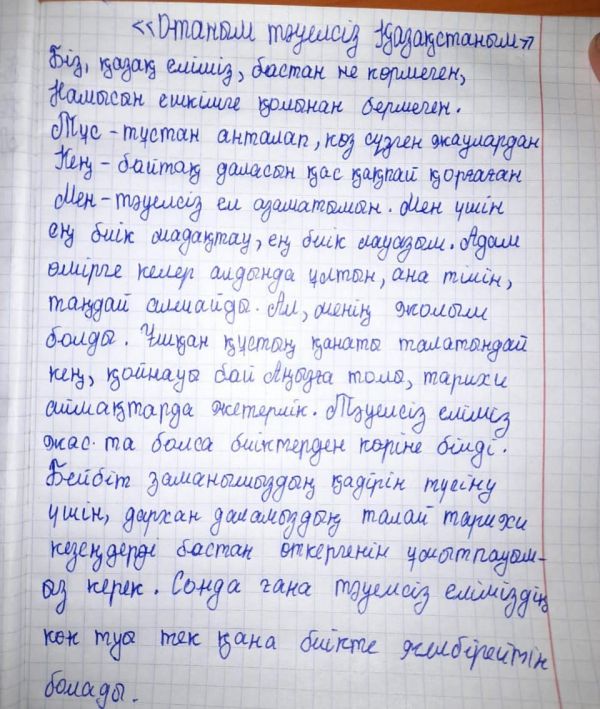 «Отаным тәуелсіз Қазақстаным»
Біз, қазақ еліміз, бастан не көрмеген,
Намысын ешкімге қолынан бермеген.
Тұс-тұстан анталап, көз сүзген жаулардан
Кең-байтақ даласын қас қақпай қорғаған
Мен-тәуелсіз ел азаматымын. Мен үшін
ең биік мадақтау, ең биік лауазым. Адам
өмірге келер алдында ұлтын, ана тілін,
таңдай алмайды. Ал, менің жолым
болды. Ұшқан құстың қанаты талатындай
кең, қойнауы бай Аңызға толы, тарихи
аймақтарда жетерлік. Тәуелсіз еліміз
жас та болса биіктерден көріне білді.
Бейбіт заманымыздың қадірін түсіну
үшін, дархан даламыздың талай тарихи
кезеңдерді бастан өткергенін ұмытпауым-
ыз керек. Сонда ғана тәуелсіз еліміздің
көк туы тек қана биікте желбірейтін
болады.